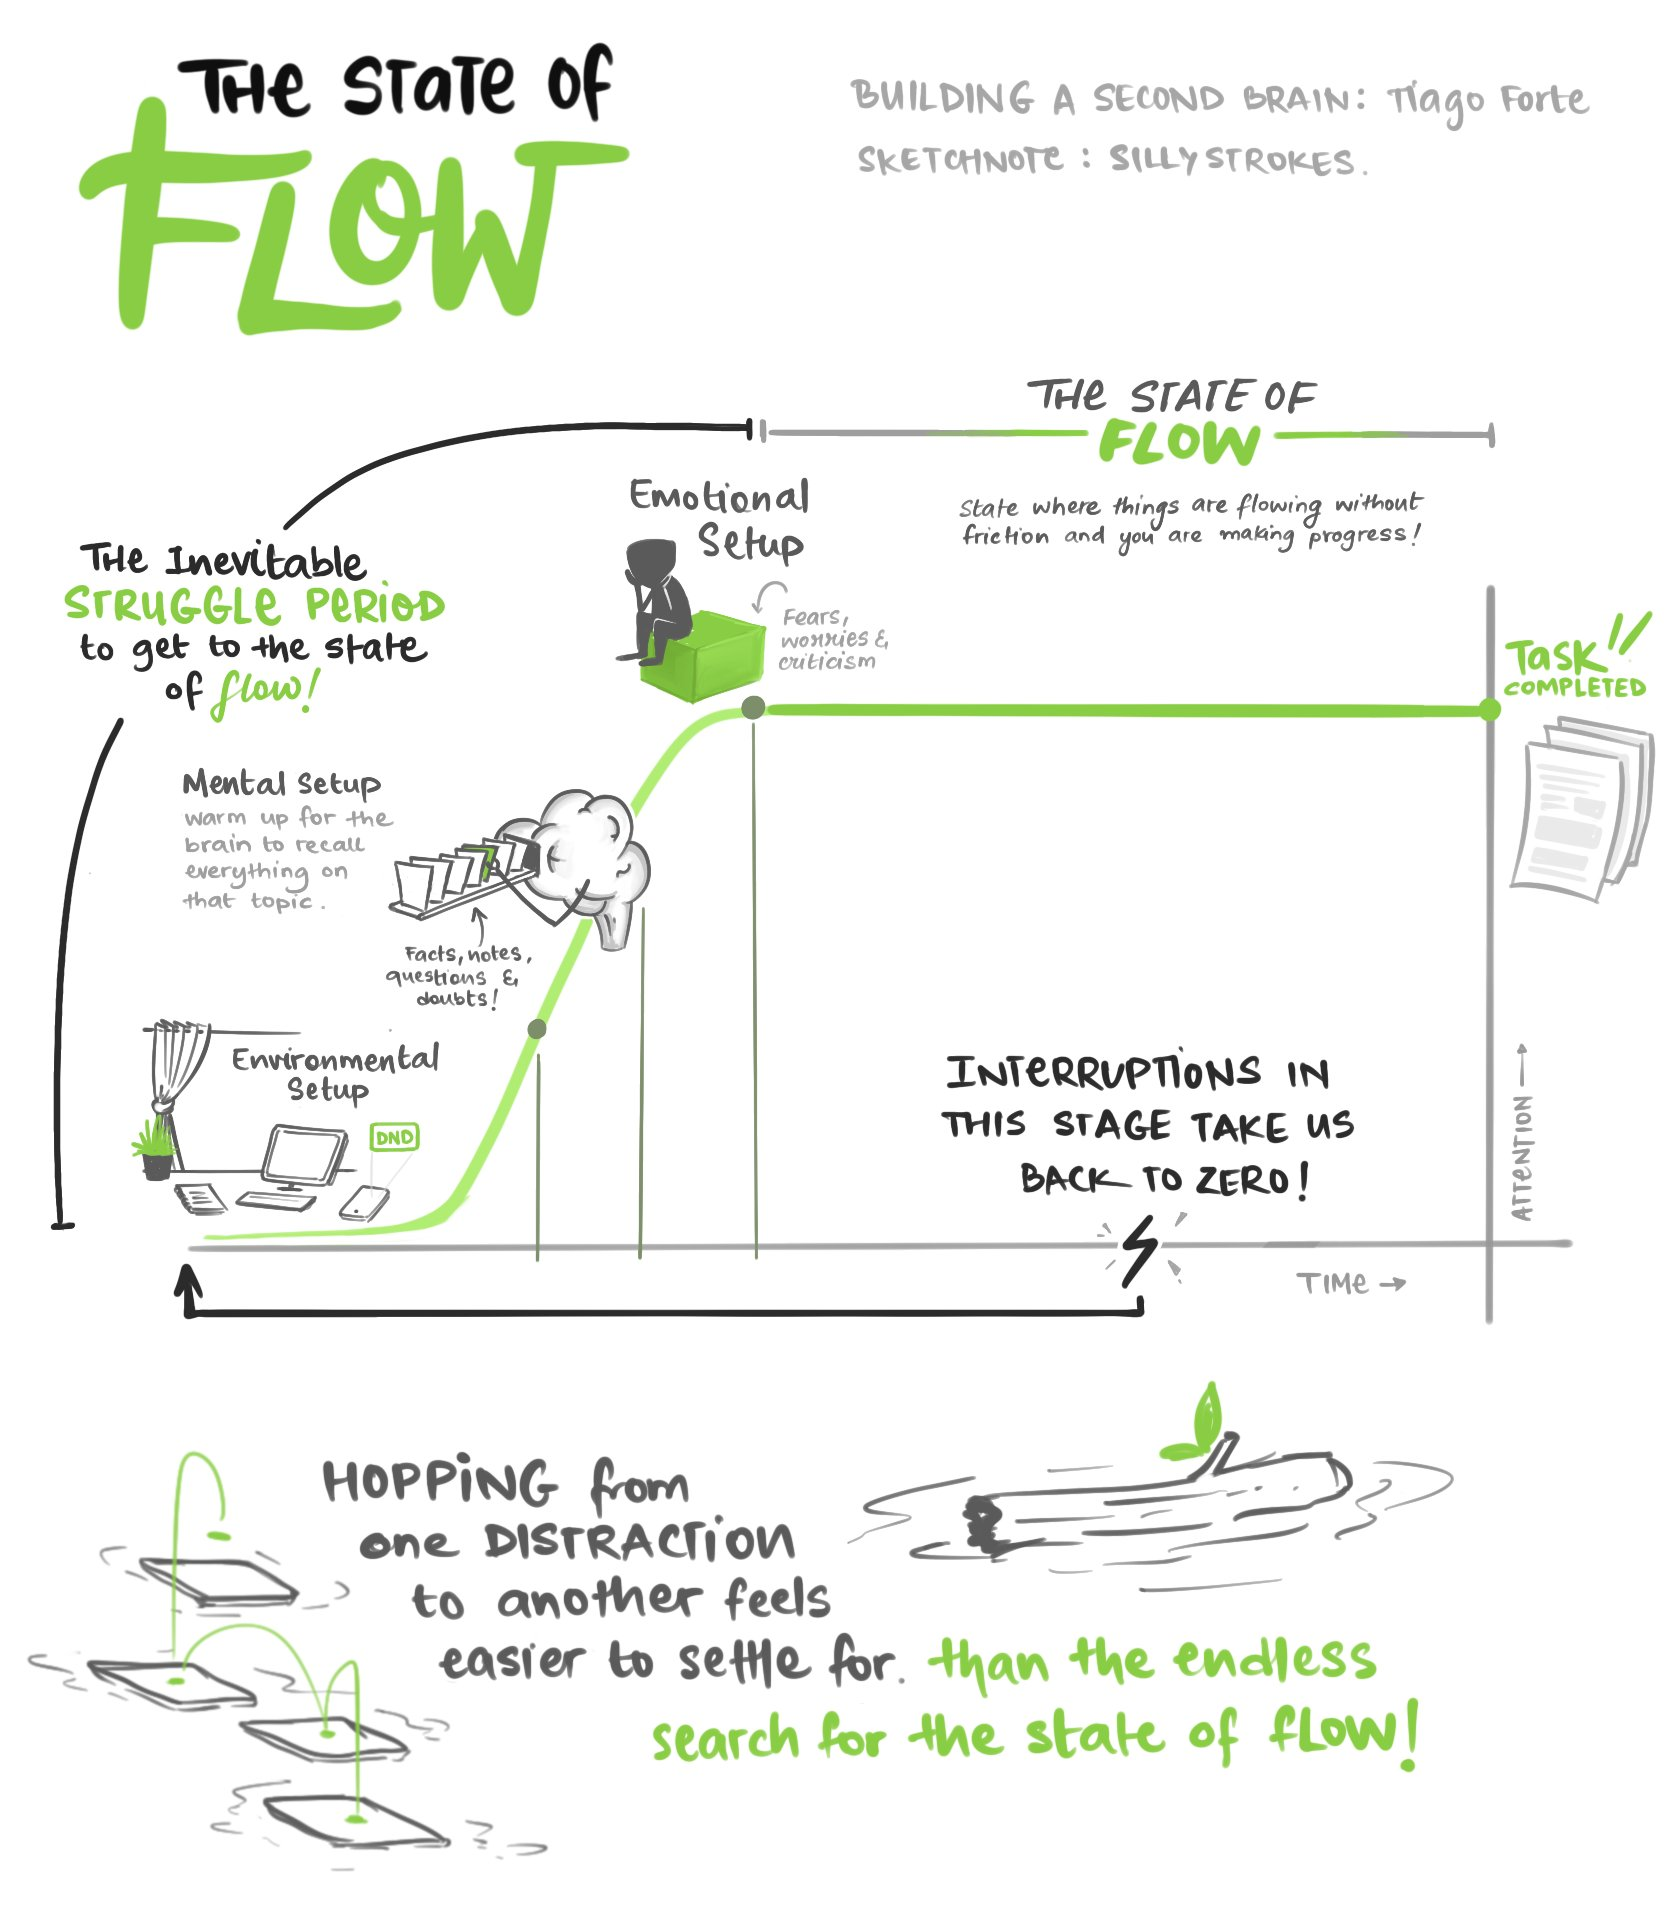 THE STATE OF
FLOW
BUILDING A SECOND BRAIN: Tiago Forte
SKETCHNOTE : SILLYSTROKES.
THE STATE OF
FLOW
State where things are flowing without
friction and you are making progress!
The Inevitable
STRUGGLE PERIOD
to get to the state
of flow!
Emotional
Setup
Fears,
worries &
criticism
TASK
COMPLETED
Mental Setup
warm up for the
brain to recall
everything on
that topic.
Facts, notes,
questions &
doubts!
Environmental
Setup
DND
INTERRUPTIONS IN
THIS STAGE TAKE US
BACK TO ZERO!
ATTENTION
TIME
HOPPING from
one DISTRACTION
to another feels
easier to settle for. than the endless
search for the state of FLOW!